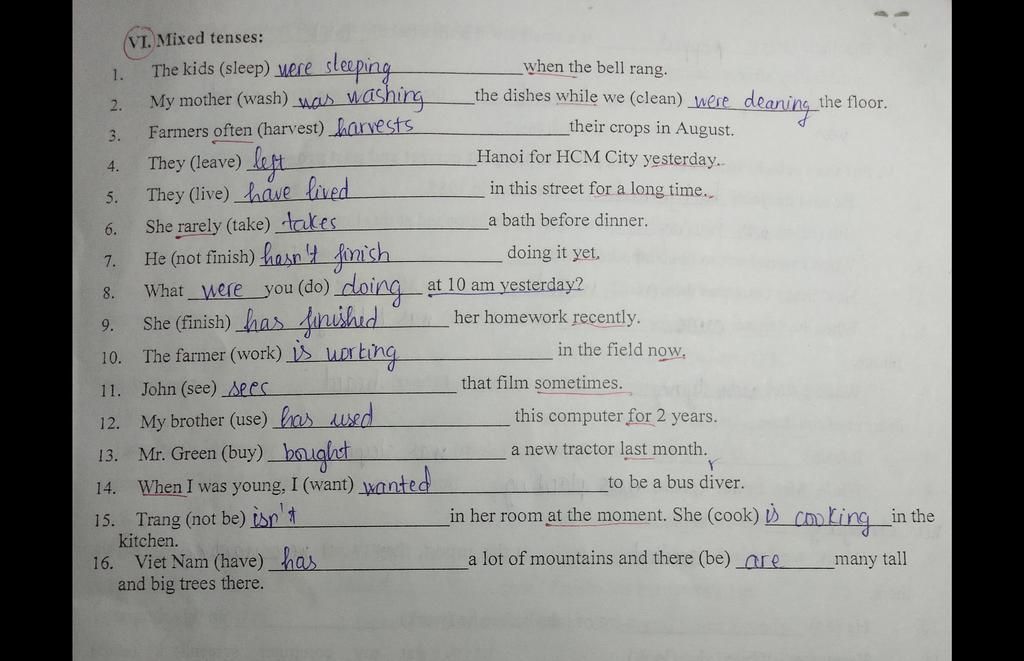 VI. Mixed tenses:
1. The kids (sleep) were sleeping when the bell rang.
2. My mother (wash) was washing the dishes while we (clean) were cleaning the floor.
3. Farmers often (harvest) harvests their crops in August.
4. They (leave) left Hanoi for HCM City yesterday.
5. They (live) have lived in this street for a long time.
6. She rarely (take) takes a bath before dinner.
7. He (not finish) hasn't finish doing it yet.
8. What were you (do) doing at 10 am yesterday?
9. She (finish) has finished her homework recently.
10. The farmer (work) is working in the field now.
11. John (see) sees that film sometimes.
12. My brother (use) has used this computer for 2 years.
13. Mr. Green (buy) bought a new tractor last month.
r
14. When I was young, I (want) wanted to be a bus diver.
15. Trang (not be) isn't in her room at the moment. She (cook) is cooking in the
kitchen.
16. Viet Nam (have) has a lot of mountains and there (be) are many tall
and big trees there.